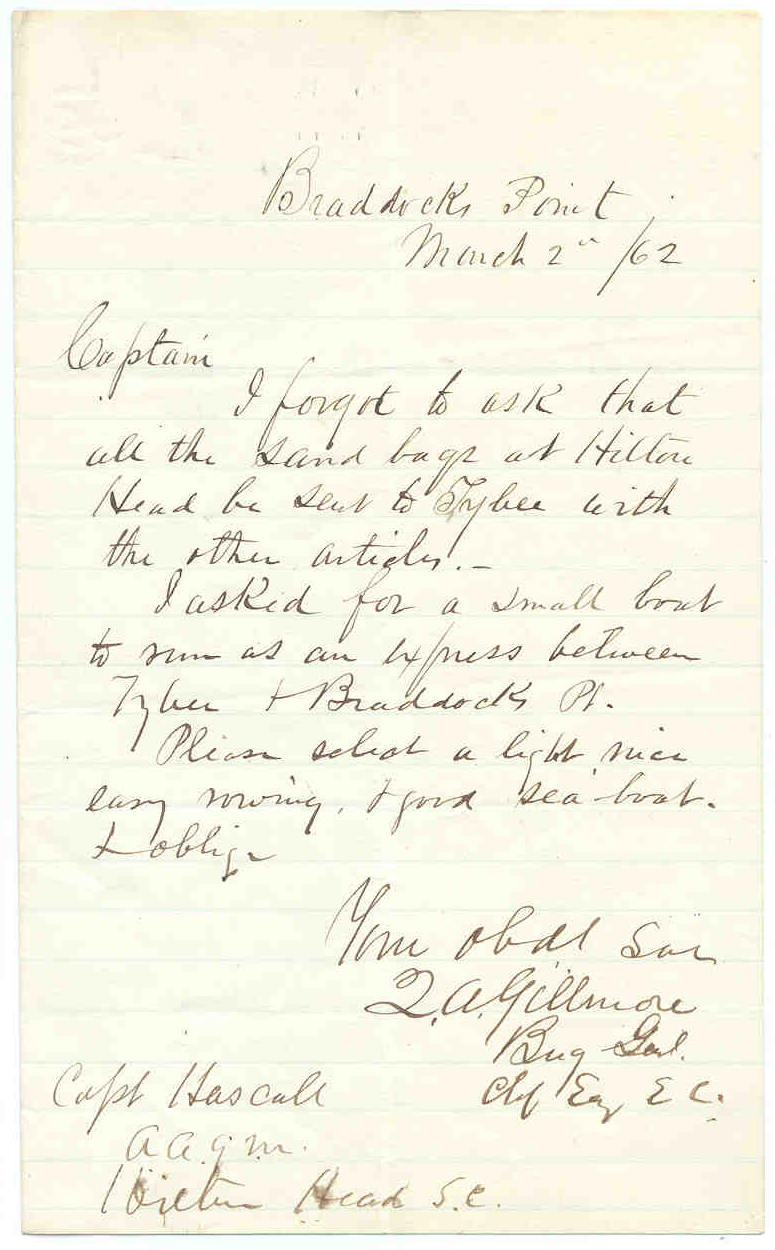 Braddocks Point
March 2d /62
Captain
I forgot to ask that
all the sand bags at Hilton
Head be sent to Tybee with
the other articles. –
I asked for a small boat
to run as an express between
Tybee & Braddocks Pt.
Please select a light nice
easy rowing, & good sea-boat.
& oblige
Your obdt Ser
Q. A. Gillmore
Brig Genl.
Chf Eng E C.
Capt Hascall
A. A. Q M.
Hilton Head S. C.